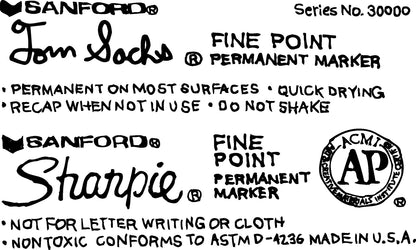 SANFORD® Series No. 30000
Tom Sachs ® FINE POINT
PERMANENT MARKER
• PERMANENT ON MOST SURFACES • QUICK DRYING
• RECAP WHEN NOT IN USE • DO NOT SHAKE
SANFORD®
Sharpie ®
FINE
POINT
PERMANENT
MARKER
ACMI
AP
CREATIVE MATERIALS INSTITUTE
• NOT FOR LETTER WRITING OR CLOTH
• NONTOXIC CONFORMS TO ASTM D-4236 MADE IN U.S.A.